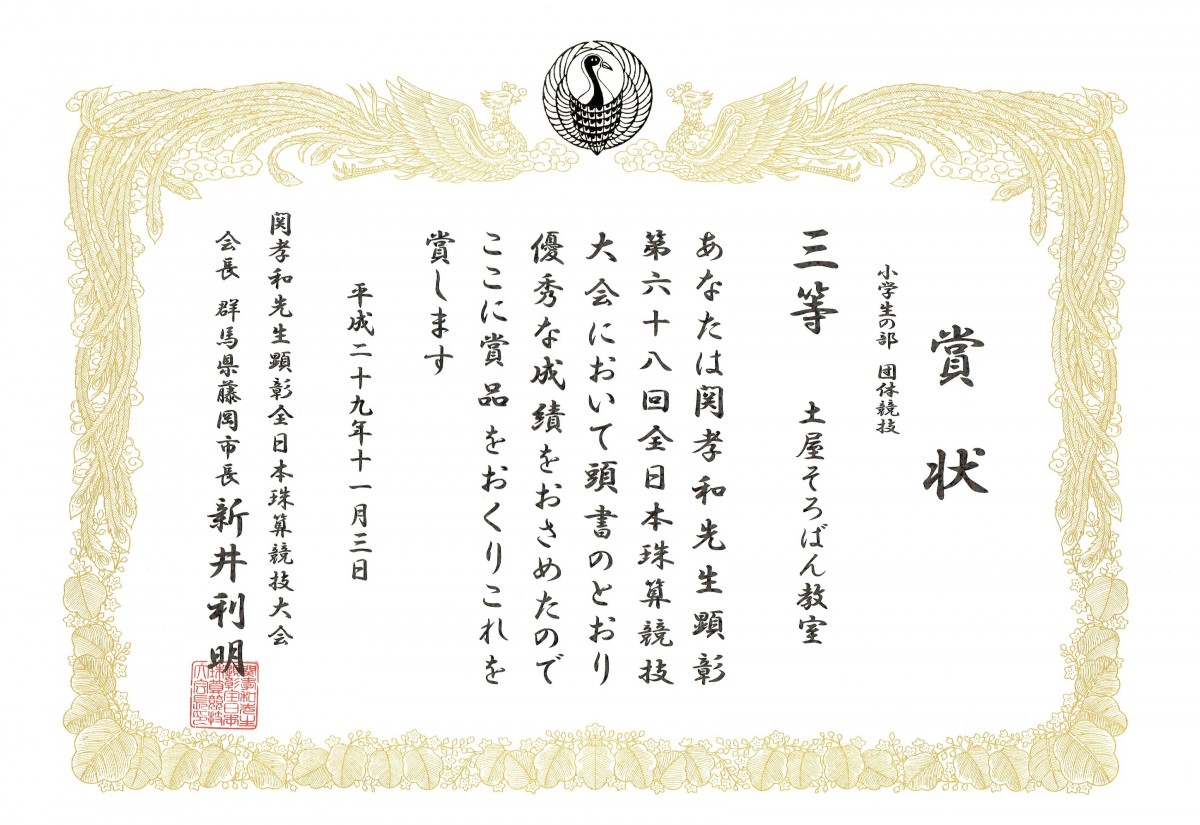 賞状
小学生の部 団体競技
三等 土屋そろばん教室
あなたは関孝和先生顕彰
第六十八回全日本珠算競技
大会において頭書のとおり
優秀な成績をおさめたので
ここに賞品をおくりこれを
賞します
平成二十九年十一月三日
関孝和先生顕彰全日本珠算競技大会
会長 群馬県藤岡市長 新井利明